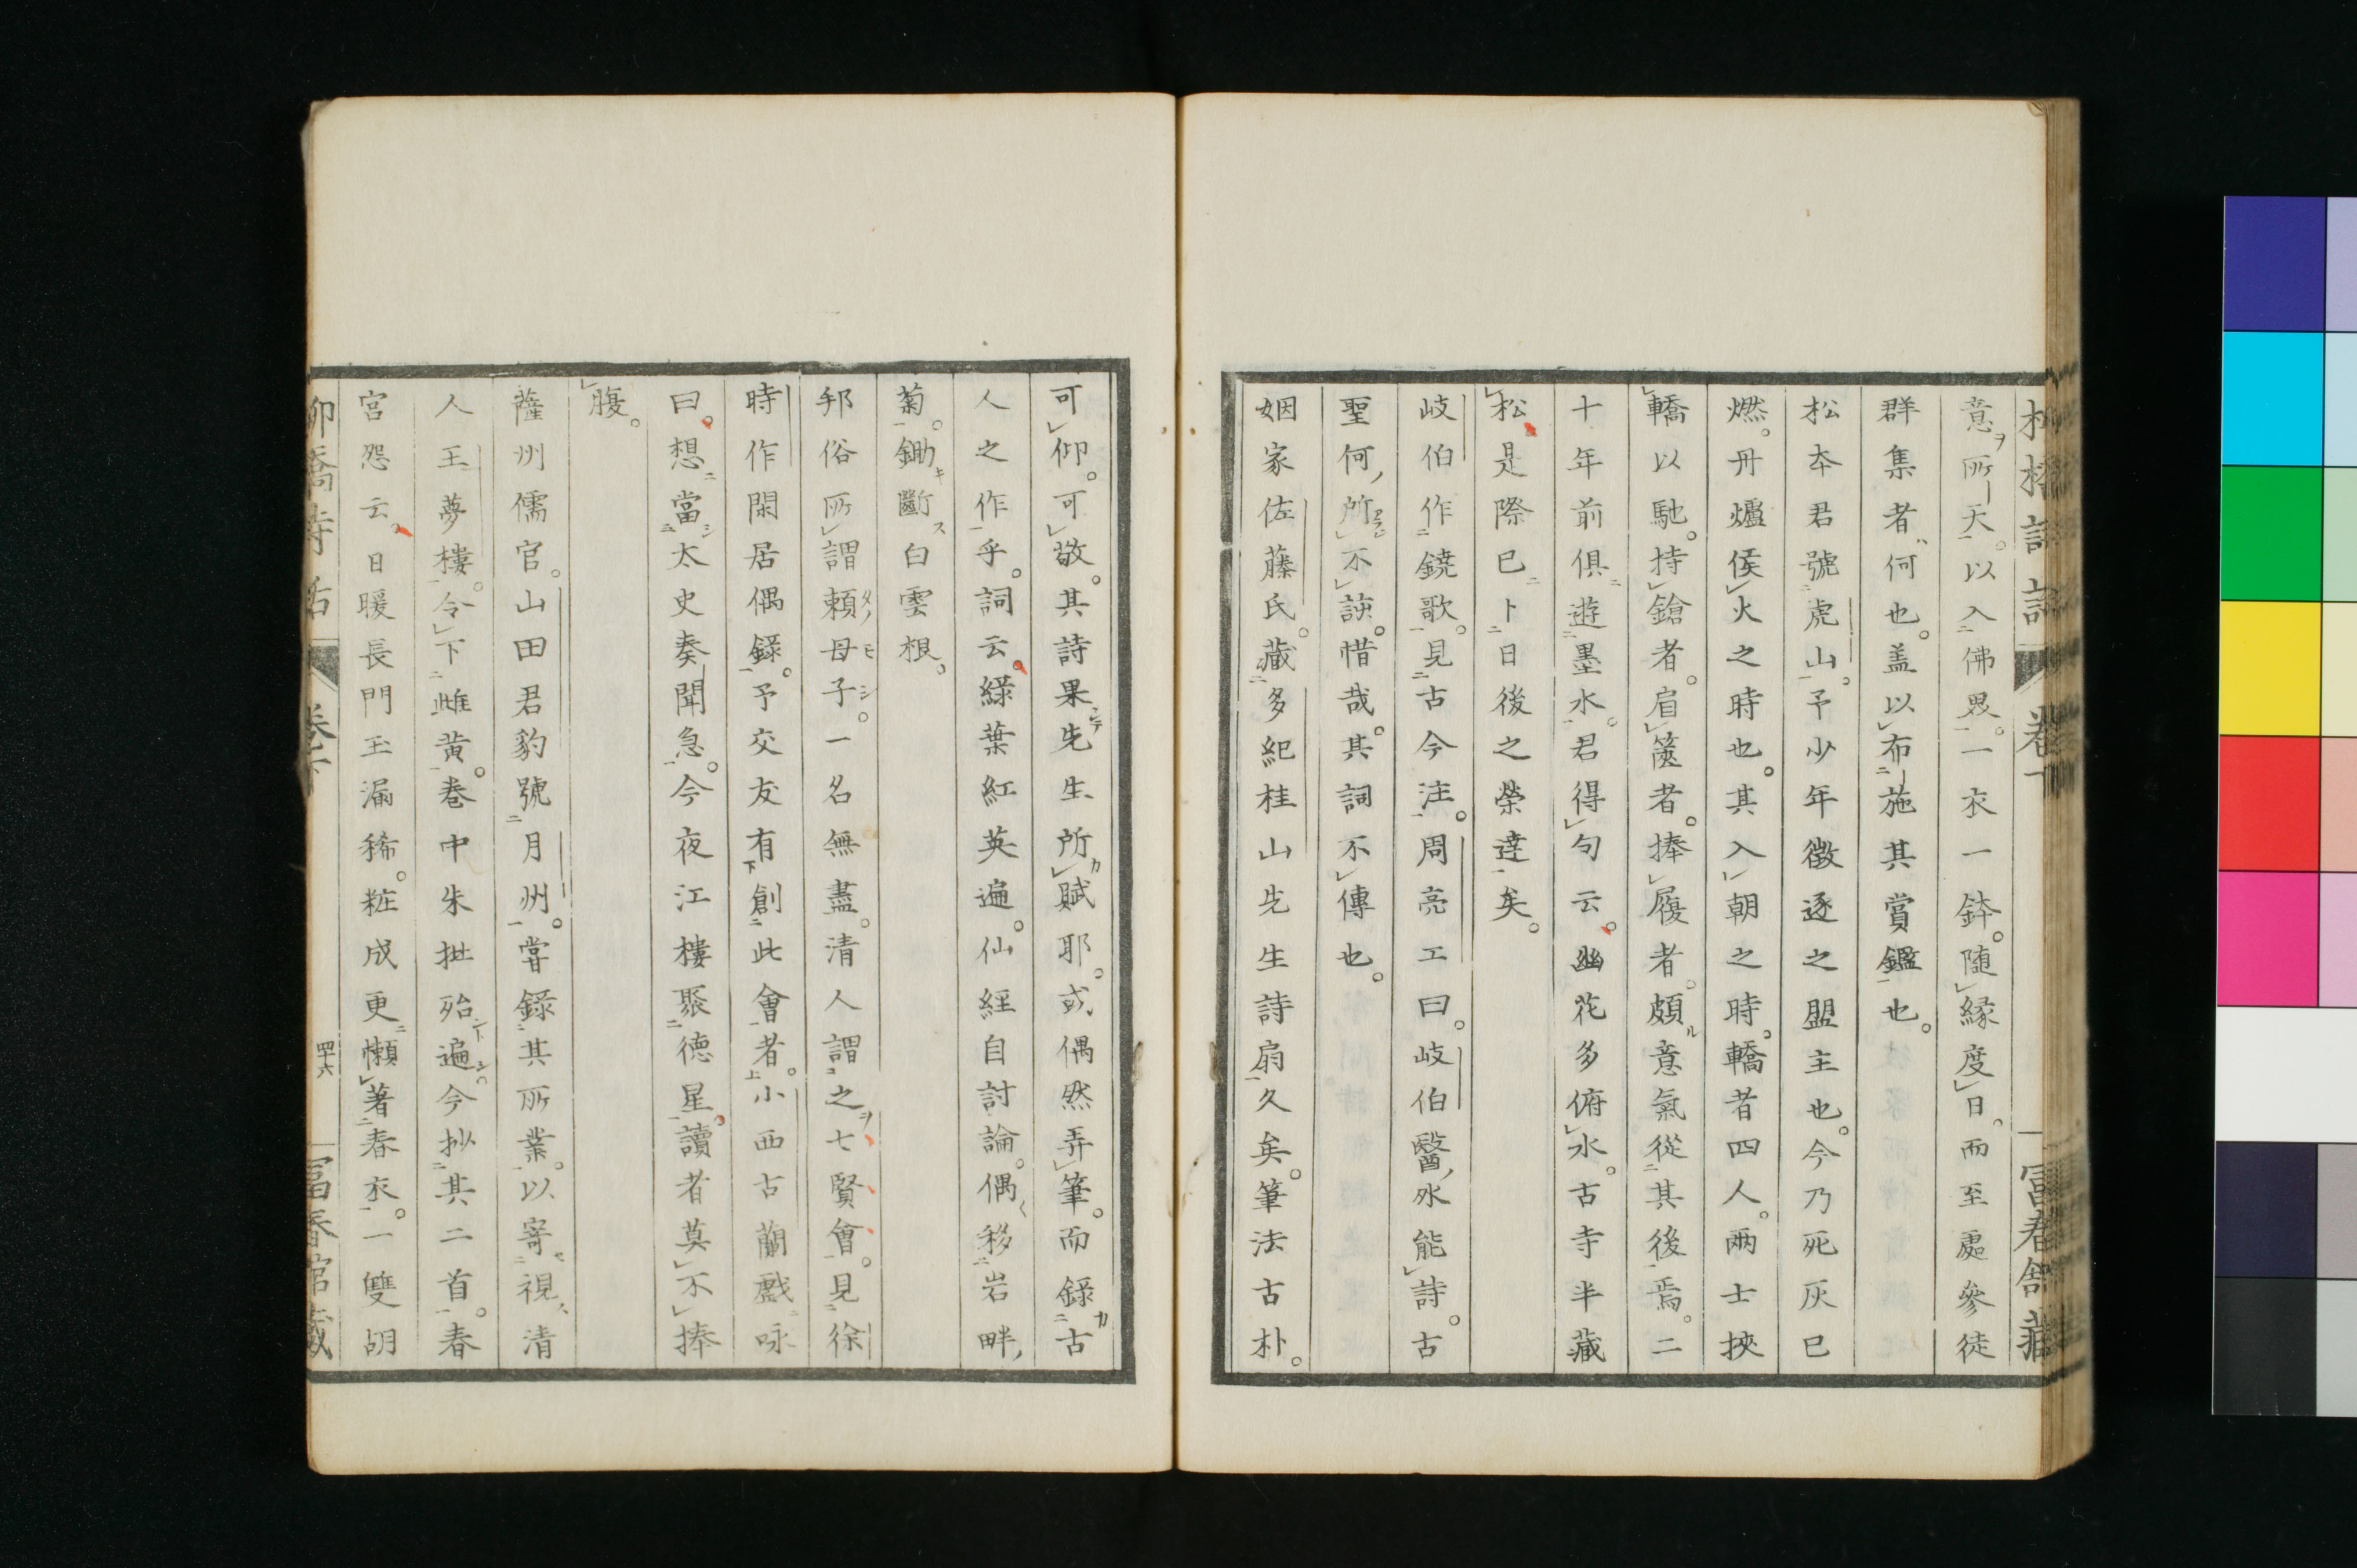 意ヲ所天以入佛毘一衣一鉢隨緣度日而至處參徒
群集者何也盖以布施其賞鑑也
松本君號虎山予少年徵逐之盟主也今乃死灰已
燃丹爐侯火之時也其入朝之時轎者四人兩士挾
轎以馳持鎗者肩篋者捧履者頗意氣從其後焉二
十年前俱遊墨水君得句云幽花多俯水古寺半藏
松是際已卜日後之榮達矣
岐伯作鐃歌見古今注周亮工曰岐伯醫亦能詩古
聖何所不誤惜哉其詞不傳也
姻家佐藤氏藏多紀桂山先生詩扇久矣筆法古朴
可仰可敬其詩果先生所賦耶或偶然弄筆而錄古
人之作乎詞云綠葉紅英遍仙經自討論偶移岩畔
菊鋤斷白雲根
邦俗所謂賴母子一名無盡清人謂之七賢會見徐
時作閑居偶錄予交友有創此會者小西古蘭戲咏
曰想當太史奏聞急今夜江樓聚德星讀者莫不捧
腹
薩州儒官山田君豹號月州嘗錄其所業以寄視清
人王夢樓令下雌黃卷中朱批殆遍今抄其二首春
宮怨云日暖長門玉漏稀粧成更懶著春衣一雙胡
柳橋詩話
卷下
四十六
富春館藏